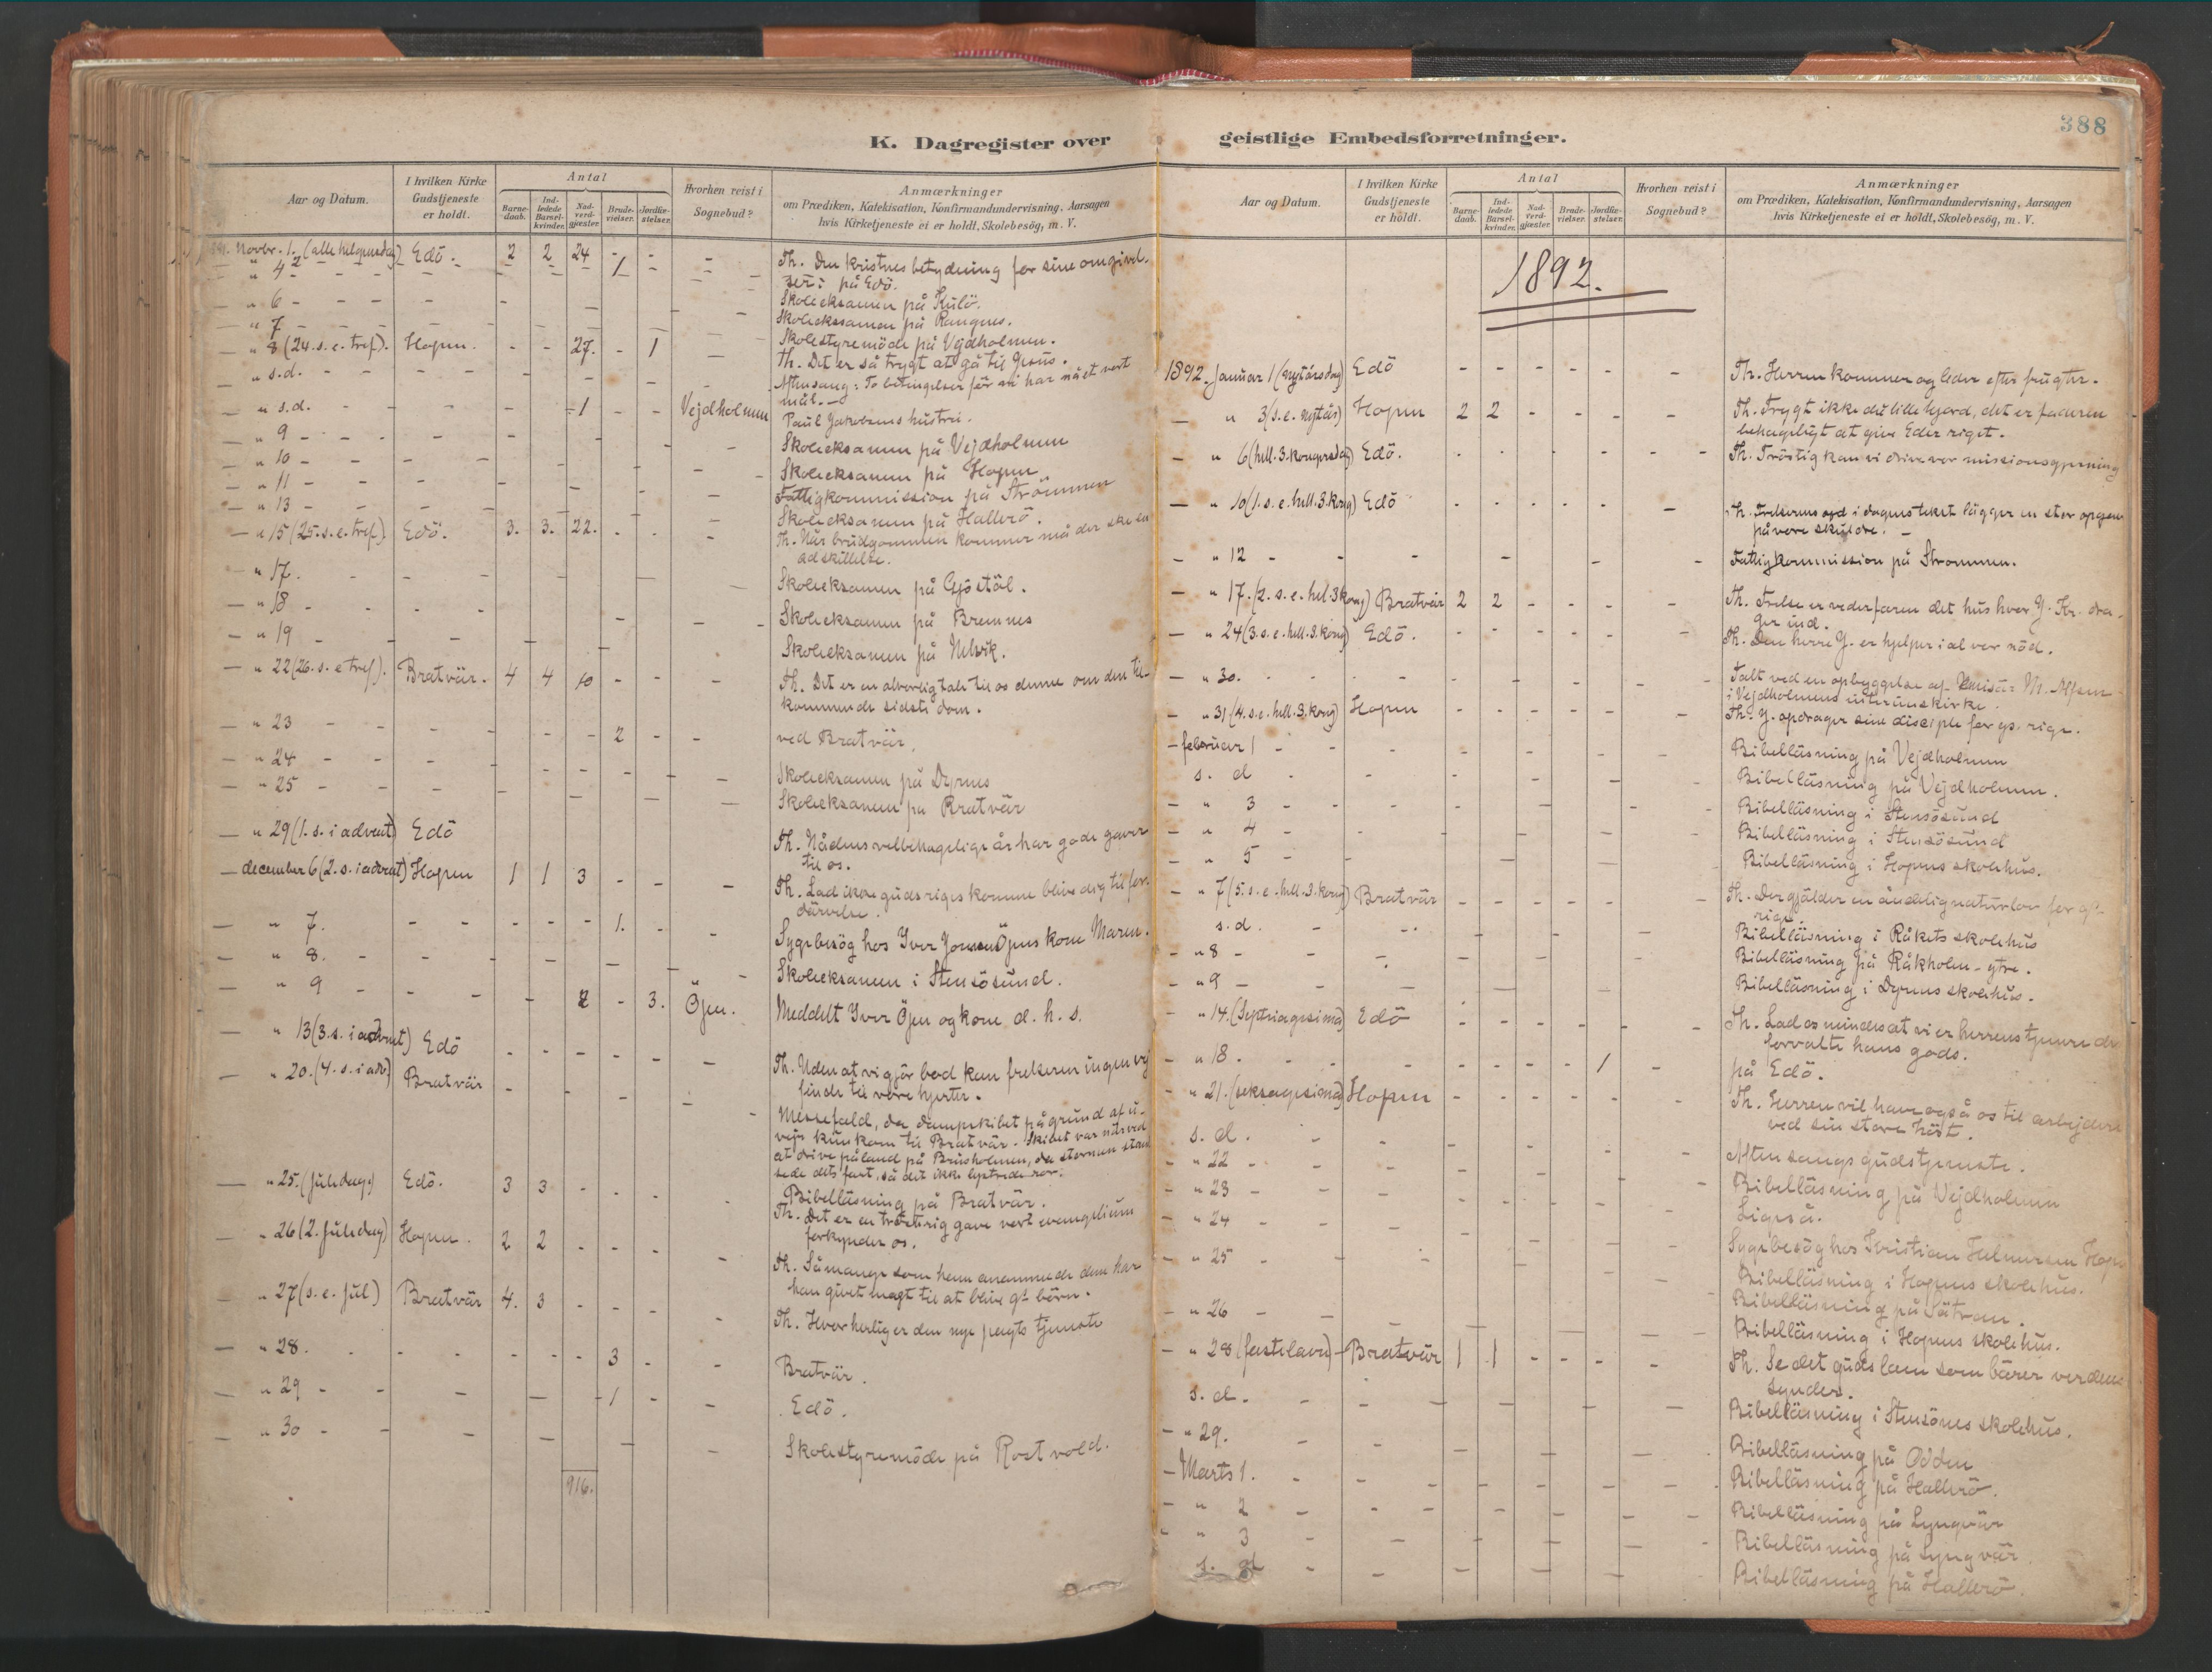 K. Dagregister over geistlige Embedsforretninger.
388
Aar og Datum.
I hvilken Kirke Gudstjeneste er holdt.
Antal
Barne-daab.
Ind-ledede Barsel-kvinder.
Nad-verd-gjæster.
Brude-vielser.
Jordfæ-stelser.
Hvorhen reist i Sognebud?
Anmærkninger
om Prædiken, Katekisation, Konfirmandundervisning. Aarsagen
hvis Kirketjeneste ei er holdt, Skolebesög, m. V.
Novbr. 1. (allehelgensdag) Edö. 2 2 24 - - - Th. Den kristnes betydning for sine omgivel-
" 4 - - - 1 - - ser: på Edö.
" 6 - - - Skoleeksamen på Kulö.
" 7 - - - Skoleeksamen på Rangnes.
" 8 (24. s. e. tref.) Hopen. - - 27. - 1 - Skolestyremöde på Vejdholmen.
Th. Det er så trygt at gå til Jesus.
" s.d. - - - Aftensang: To betingelser för vi har nået vort
mål. -
" s.d. - - - 1 - - Vejdholmen Paul Jakobsens hustru.
" 9 - - - Skoleeksamen på Vejdholmen
" 10 - - - Skoleeksamen på Hopen
" 11 - - - Fattigkommission på Strömmen
" 13 - - - Skoleeksamen på Hallerö.
" 15 (25. s. e. tref.) Edö. 3. 3. 22. - - - Th. Når brudgommen kommer må der ske en
adskillelse.
" 17. - - - Skoleeksamen på Gjöstöl.
" 18 - - - Skoleeksamen på Bremnes
" 19 - - - Skoleeksamen på Nelvik.
" 22 (26. s. e tref). Bratvär. 4 4 10 - - - Th. Det er en alvorlig tale til os denne om den til-
kommende sidste dom.
" 23 - - - 2 - - ved Bratvär.
" 24 - - -
" 25 - - - Skoleeksamen på Dyrnes
Skoleeksamen på Bratvär
" 29 (1. s. i advent) Edö Th. Nådens velbehagelige år har gode gaver
til os.
december 6 (2. s. i advent) Hopen 1 1 3 - - - Th. Lad ikke guds riges komme blive dig til for-
därvelse.
" 7. - - - 1. - - Sygebesög hos Iver Jonsen Öjens kone Maren.
" 8. - - - Skoleeksamen i Stensösund.
" 9 - - - 2 - 3. Öjen. Meddelt Iver Öjen og kone d. h. s.
" 13 (3. s. i advent) Edö - - - Th. Uden at vi gjör bod kan frelseren ingen vej
finde til vore hjerter.
" 20. (4. s. i adv) Bratvär - - - Messefald, da dampskibet på grund af u-
vejr kun kom til Bratvär. Skibet var när ved
at drive på land på Brusholmen, da stormen stand-
sede dets fart, så det ikke lystrede ror.
Bibelläsning på Bratvär.
" 25. (juledag) Edö. 3 3 - - - Th. Det er en trösterig gave vort evangelium
forkynder os.
" 26 (2. juledag) Hopen. 2 2 - - - Th. Så mange som ham anammede dem har
han givet magt til at blive gs börn.
" 27 (s. e. jul) Bratvär 4. 3 - - - Th. Hvor herlig er den nye pagts tjeneste
" 28. - - - 3 - - Bratvär.
" 29 - - - 1 - - Edö.
" 30 - - - Skolestyremöde på Rostvold.
916.
Aar og Datum.
I hvilken Kirke Gudstjeneste er holdt.
Antal
Barne-daab.
Ind-ledede Barsel-kvinder.
Nad-verd-gjæster.
Brude-vielser.
Jordfæ-stelser.
Hvorhen reist i Sognebud?
Anmærkninger
om Prædiken, Katekisation, Konfirmandundervisning, Aarsagen
hvis Kirketjeneste ei er holdt, Skolebesög, m. V.
1892.
1892. Januar 1 (nytårsdag) Edö - - - Th. Herren kommer og leder efter frugter.
" 3 (s. e. nytår) Hopen 2 2 - - - Th. Frygt ikke du lille hjord, det er faderen
behageligt at give Eder riget.
" 6 (hell. 3. kongersdag) Edö. - - - Th. Tröstig kan vi drive vor missionsgjerning
" 10 (1. s. e. hell. 3. kong) Edö - - - Th. Frelserens ord i dagens tekst lägger en stor opgave
på vore skuldre. -
" 12 - - - Fattigkommission på Strommen.
" 17. (2. s. e. hel. 3 kong) Bratvär 2 2 - - - Th. Frelse er vederfaren det hus hvor J. Kr. dra-
ger ind.
" 24 (3. s. e. hell. 3. kong) Edö. - - - Th. Den herre J. er hjelper i al vor nöd.
" 30. - - - Talt ved en opbyggelse af
i Vejdholmens interimskirke.
" 31 (4. s. e. hell. 3. kong) Hopen - - - Th. J. opdrager sine disciple for gs. rige.
februar 1 - - - Bibelläsning på Vejdholmen
s. d - - - Bibelläsning på Vejdholmen.
" 3 - - - Bibelläsning i Stensösund
" 4 - - - Bibelläsning i Stensösund
" 5 - - - Bibelläsning i Hopens skolehus.
" 7 (5. s. e. hell. 3. kong) Bratvär - - - Th. Der gjälder en åndelig naturlov for gs
rige.
s.d. - - - Bibelläsning i Råkets skolehus
" 8 - - - Bibelläsning på Råkholm-ytre.
" 9 - - - Bibelläsning i Dyrnes skolehus.
" 14. (Septuagesima) Edö - - - Th. Lad os mindes at vi er herrens tjenere der
forvalte hans gods.
" 18. - - - 1 - på Edö.
" 21. (seksagesima) Hopen - - - Th. Herren vil have også os til arbejdere
ved sin store höst.
s. d. - - - Aftensangs gudstjeneste.
" 22 - - - Bibelläsning på Vejdholmen
" 23 - - - Ligeså.
" 24 - - - Sygebesög hos Kristian Helmersen Hopen
" 25 - - - Bibelläsning i Hopens skolehus.
Bibelläsning på Sätran.
" 26 - - - Bibelläsning i Hopens skolehus.
" 28 (fastelavn) Bratvär 1 1 - - - Th. Se det guds lam som bärer verdens
synder.
s. d. - - - Bibelläsning i Stensönes skolehus.
" 29. - - - Bibelläsning på Odden
Marts 1. - - - Bibelläsning på Hallerö.
" 2 - - - Bibelläsning på Lyngvär
" 3 - - - Bibelläsning på Lyngvär
s. d - - - Bibelläsning på Hallerö.